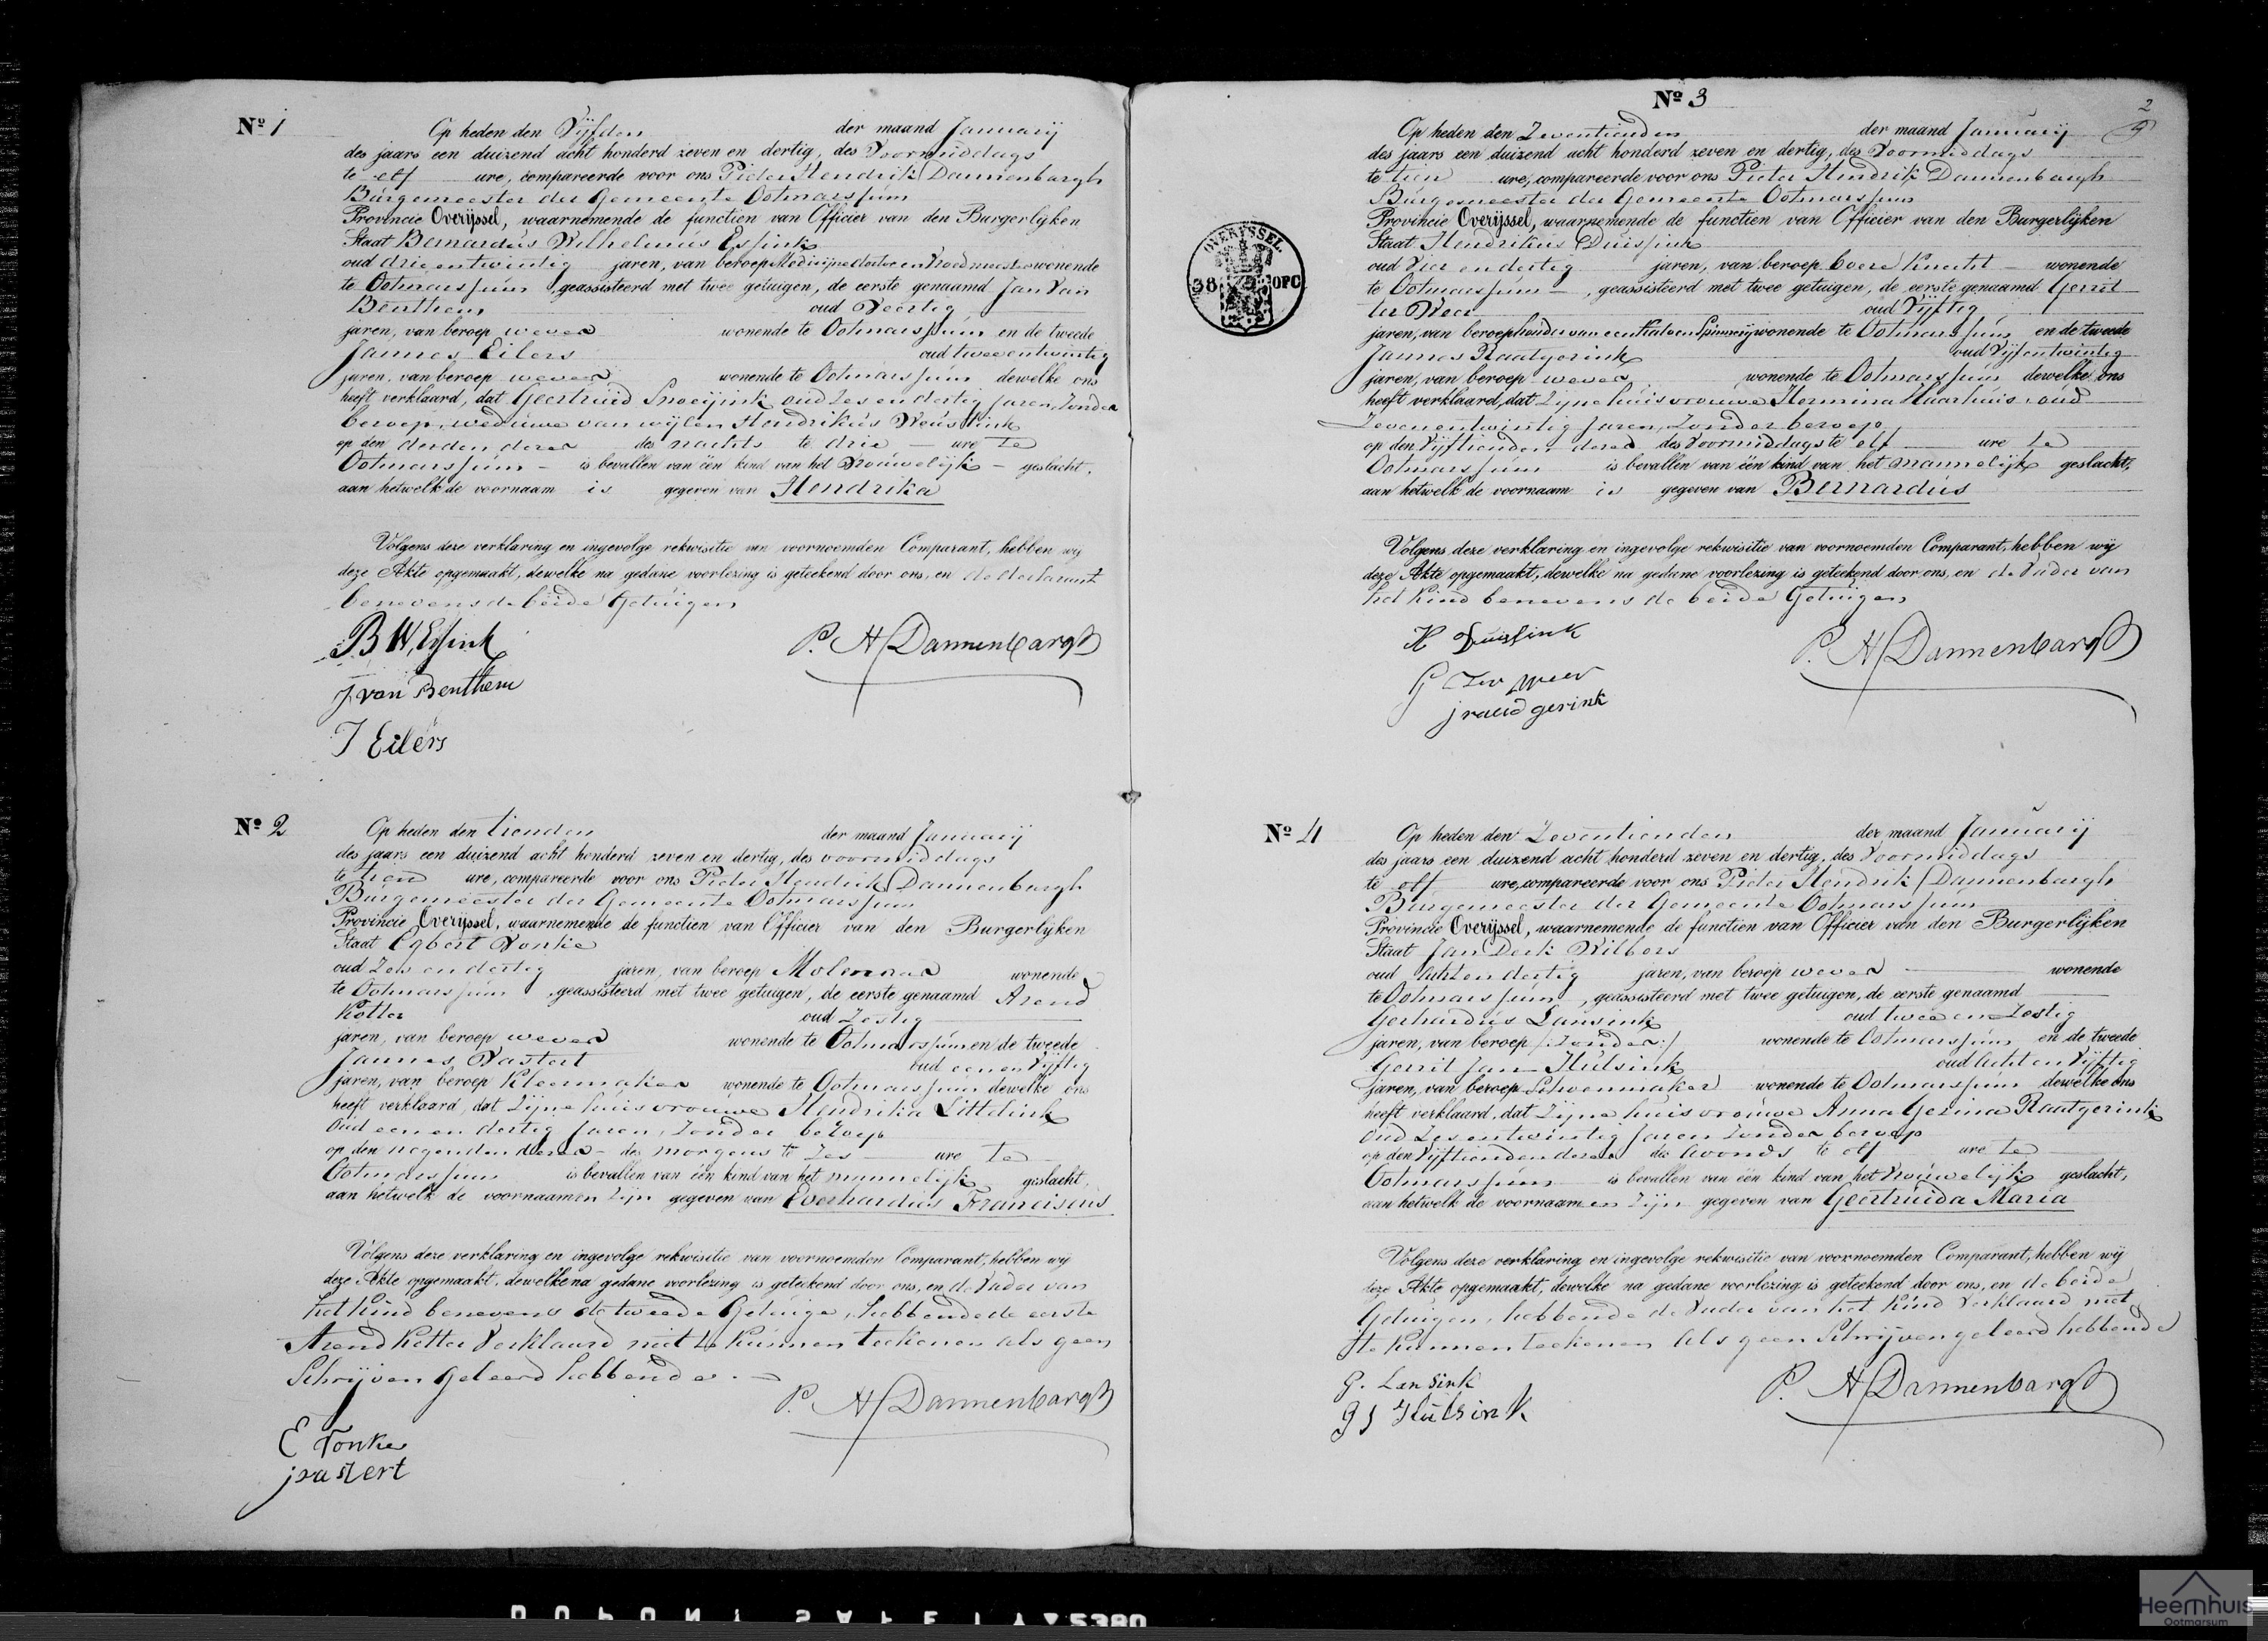 Nº 1
Op heden den Vijfden der maand Januarij
des jaars een duizend acht honderd zeven en dertig, des Voormiddags
te elf ure, compareerde voor ons Pieter Hendrik Dannenbargh
Burgemeester der Gemeente Ootmarssum
Provincie Overijssel, waarnemende de functien van Officier van den Burgerlyken
Staat Bernardus Wilhelmus Essink
oud drie en twintig jaren, van beroep Medicijne doctor en Vroedmeester wonende
te Ootmarssum, geassisteerd met twee getuigen, de eerste genaamd Jan Van
Benthem oud Veertig
jaren, van beroep wever wonende te Ootmarssum en de tweede
Jannes Eilers oud twee en twintig
jaren, van beroep wever wonende te Ootmarssum dewelke ons
heeft verklaard, dat Geertruid Snoeijink oud Zes en dertig jaren, Zonder
beroep, weduwe van wijlen Hendrikus
op den derden dezer des nachts te drie ure te
Ootmarssum is bevallen van één kind van het Vrouwelijk geslacht,
aan hetwelk de voornaam is gegeven van Hendrika
Volgens deze verklaring en ingevolge rekwisitie van voornoemden Comparant, hebben wy
deze Akte opgemaakt, dewelke na gedane voorlezing is geteekend door ons, en de declarant
benevens de beide Getuigen
B W Essink P. H Dannenbargh
J van Benthem
J Eilers
Nº 2
Op heden den tienden der maand Januarij
des jaars een duizend acht honderd zeven en dertig, des voormiddags
te tien ure, compareerde voor ons Pieter Hendrik Dannenbargh
Burgemeester der Gemeente Ootmarssum
Provincie Overijssel, waarnemende de functien van Officier van den Burgerlyken
Staat Egbert Vonke
oud Zes en dertig jaren, van beroep Molenaar wonende
te Ootmarssum, geassisteerd met twee getuigen, de eerste genaamd Arend
Ketter oud Zestig
jaren, van beroep wever wonende te Ootmarssum en de tweede
Jannes Vastert oud een en Vijftig
jaren, van beroep Kleermaker wonende te Ootmarssum dewelke ons
heeft verklaard, dat Zijne huisvrouwe Hendrika Littelink
oud een en dertig Jaren, Zonder beroep
op den negenden dezer des morgens te Zes ure te
Ootmarssum is bevallen van één kind van het mannelijk geslacht,
aan hetwelk de voornaamen Zijn gegeven van Everhardus Franciscus
Volgens deze verklaring en ingevolge rekwisitie van voornoemden Comparant, hebben wij
deze Akte opgemaakt, dewelke na gedane voorlezing is geteekend door ons, en de Vader van
het Kind benevens de tweede Getuige, hebbende de eerste
Arend Ketter Verklaard niet te Kunnen teekenen als geen
Schrijven geleerd hebbende.
P. H Dannenbargh
E Vonke
j vastert
Nº 3
2
Op heden den Zeventienden der maand Januarij
des jaars een duizend acht honderd zeven en dertig, des Voormiddags
te tien ure, compareerde voor ons Pieter Hendrik Dannenbargh
Burgemeester der Gemeente Ootmarssum
Provincie Overijssel, waarnemende de functien van Officier van den Burgerlijken
Staat Hendrikus Duissink
oud Vier en dertig jaren, van beroep boere Knecht wonende
te Ootmarssum, geassisteerd met twee getuigen, de eerste genaamd Gerrit
ter Weer oud Vijftig
jaren, van beroep houder van een Katoen Spinnerij wonende te Ootmarssum en de tweede
Jannes Raatgerink oud Vijf en twintig
jaren, van beroep wever wonende te Ootmarssum dewelke ons
heeft verklaard, dat Zijne huisvrouwe Hermina Haarhuis oud
Zeven en twintig Jaren, Zonder beroep
op den Vijftienden dezer des Voormiddags te elf ure te
Ootmarssum is bevallen van één kind van het mannelijk geslacht,
aan hetwelk de voornaam is gegeven van Bernardus
Volgens deze verklaring en ingevolge rekwisitie van voornoemden Comparant, hebben wij
deze Akte opgemaakt, dewelke na gedane voorlezing is geteekend door ons, en de Vader van
het Kind benevens de beide Getuigen
H Duissink P. H Dannenbargh
G Ter Weer
j raadgerink
OVERYSSEL.
38 OPC
Nº 4
Op heden den Zeventienden der maand Januarij
des jaars een duizend acht honderd zeven en dertig, des Voormiddags
te elf ure, compareerde voor ons Pieter Hendrik Dannenbargh
Burgemeester der Gemeente Ootmarssum
Provincie Overijssel, waarnemende de functien van Officier van den Burgerlijken
Staat Jan Derk Wilbers
oud Acht en dertig jaren, van beroep wever wonende
te Ootmarssum, geassisteerd met twee getuigen, de eerste genaamd
Gerhardus Lansink oud twee en Zestig
jaren, van beroep /:Zonder:/ wonende te Ootmarssum en de tweede
Gerrit Jan Hulsink oud Acht en Vijftig
jaren, van beroep Schoenmaker wonende te Ootmarssum dewelke ons
heeft verklaard, dat Zijne huisvrouwe Anna Gezina Raatgerink
oud Zes en twintig Jaren Zonder beroep
op den Vijftienden dezer des avonds te elf ure te
Ootmarssum is bevallen van één kind van het Vrouwelijk geslacht,
aan hetwelk de voornaamen Zijn gegeven van Geertruida Maria
Volgens deze verklaring en ingevolge rekwisitie van voornoemden Comparant, hebben wij
deze Akte opgemaakt, dewelke na gedane voorlezing is geteekend door ons, en de beide
Getuigen, hebbende de Vader van het Kind Verklaard niet
te Kunnen teekenen Als geen Schrijven geleerd hebbende
G. Lansink P. H Dannenbargh
G J Hulsink
5380
Heemhuis
Ootmarsum